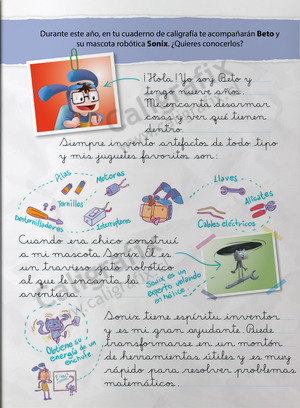 Durante este año, en tu cuaderno de caligrafía te acompañarán Beto y
su mascota robótica Sonix. ¿Quieres conocerlos?
¡Hola! Yo soy Beto y
tengo nueve años.
Me encanta desarmar
cosas y ver qué tienen
dentro.
Siempre invento artefactos de todo tipo
y mis juguetes favoritos son:
Pilas
Motores
Llaves
Tornillos
Alicates
Destornilladores
Interruptores
Cables eléctricos
Cuando era chico construí
a mi mascota Sonix. Él es
un travieso gato robótico
al que le encanta la
aventura.
Sonix es un
experto volando
en hélice.
Sonix tiene espíritu inventor
y es mi gran ayudante. Puede
transformarse en un montón
de herramientas útiles y es muy
rápido para resolver problemas
matemáticos.
Obtiene su
energía de un
enchufe.
caligrafix
www.caligrafix.cl